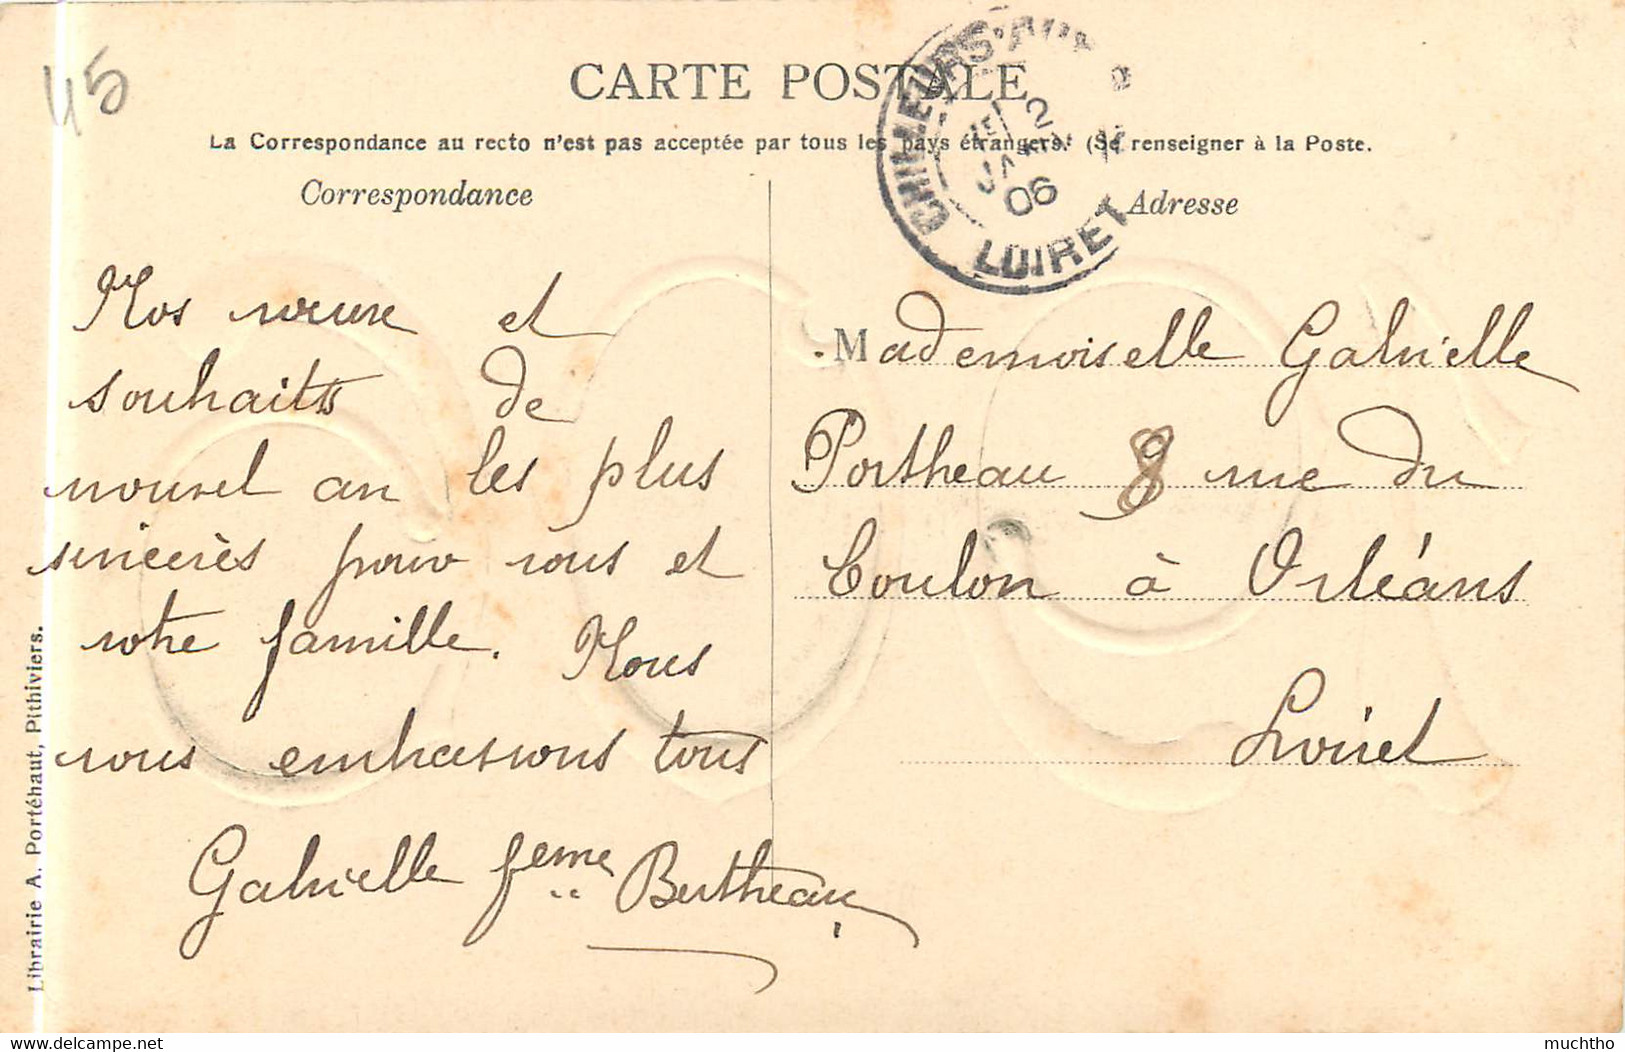 45
CARTE POSTALE
La Correspondance au recto n'est pas acceptée par tous les pays étrangers. (Se renseigner à la Poste.
Correspondance
Nos voeux et
souhaits de
nouvel an les plus
sincères pour vous et
votre famille. Nous
vous embrassons tous
Gabrielle feme Bertheau
CHILLEURS-AUX
2
JANV
06
LOIRET
Adresse
Mademoiselle Gabrielle
Portheau 8 rue du
Coulon à Orléans
Loiret
Librairie A. Portéhaut, Pithiviers.
delcampe.net
muchtho